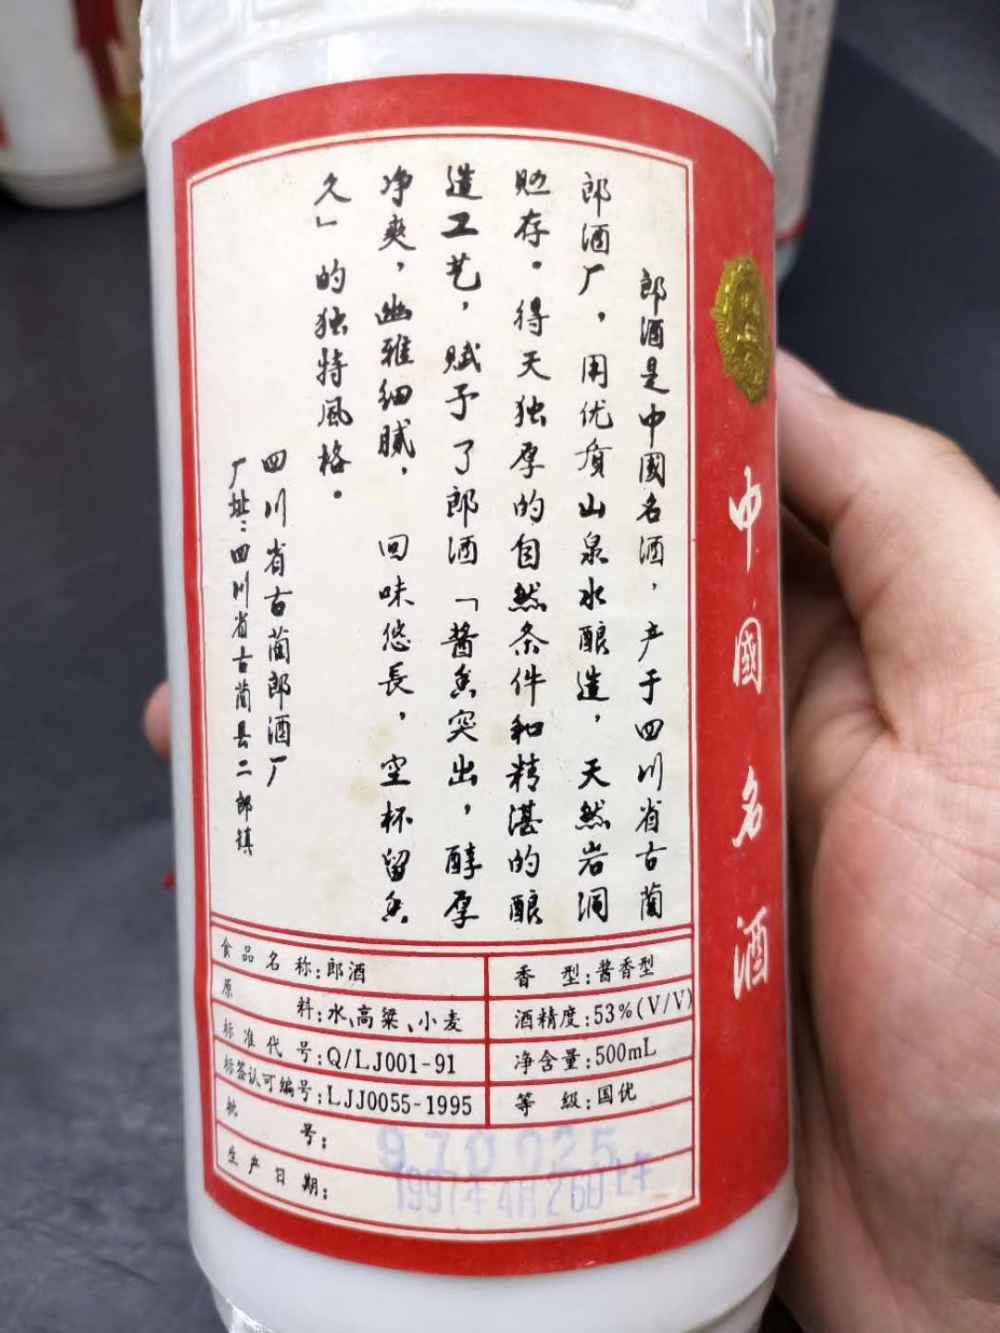 郎酒是中國名酒，产于四川省古蔺
郎酒厂，用优质山泉水酿造，天然岩洞
贮存。得天独厚的自然条件和精湛的酿
造工艺，赋予了郎酒「酱香突出，醇厚
净爽，幽雅细腻，回味悠長，空杯留香
久」的独特風格。
四川省古蔺郎酒厂
厂址：四川省古蔺县二郎镇
中國名酒
食品名称：郎酒
香型：酱香型
原料：水、高粱、小麦
酒精度：53%(V/V)
标准代号：Q/LJ001-91
净含量：500mL
标签认可编号：LJJ0055-1995
等级：国优
批号：
生产日期：
1997年4月26日